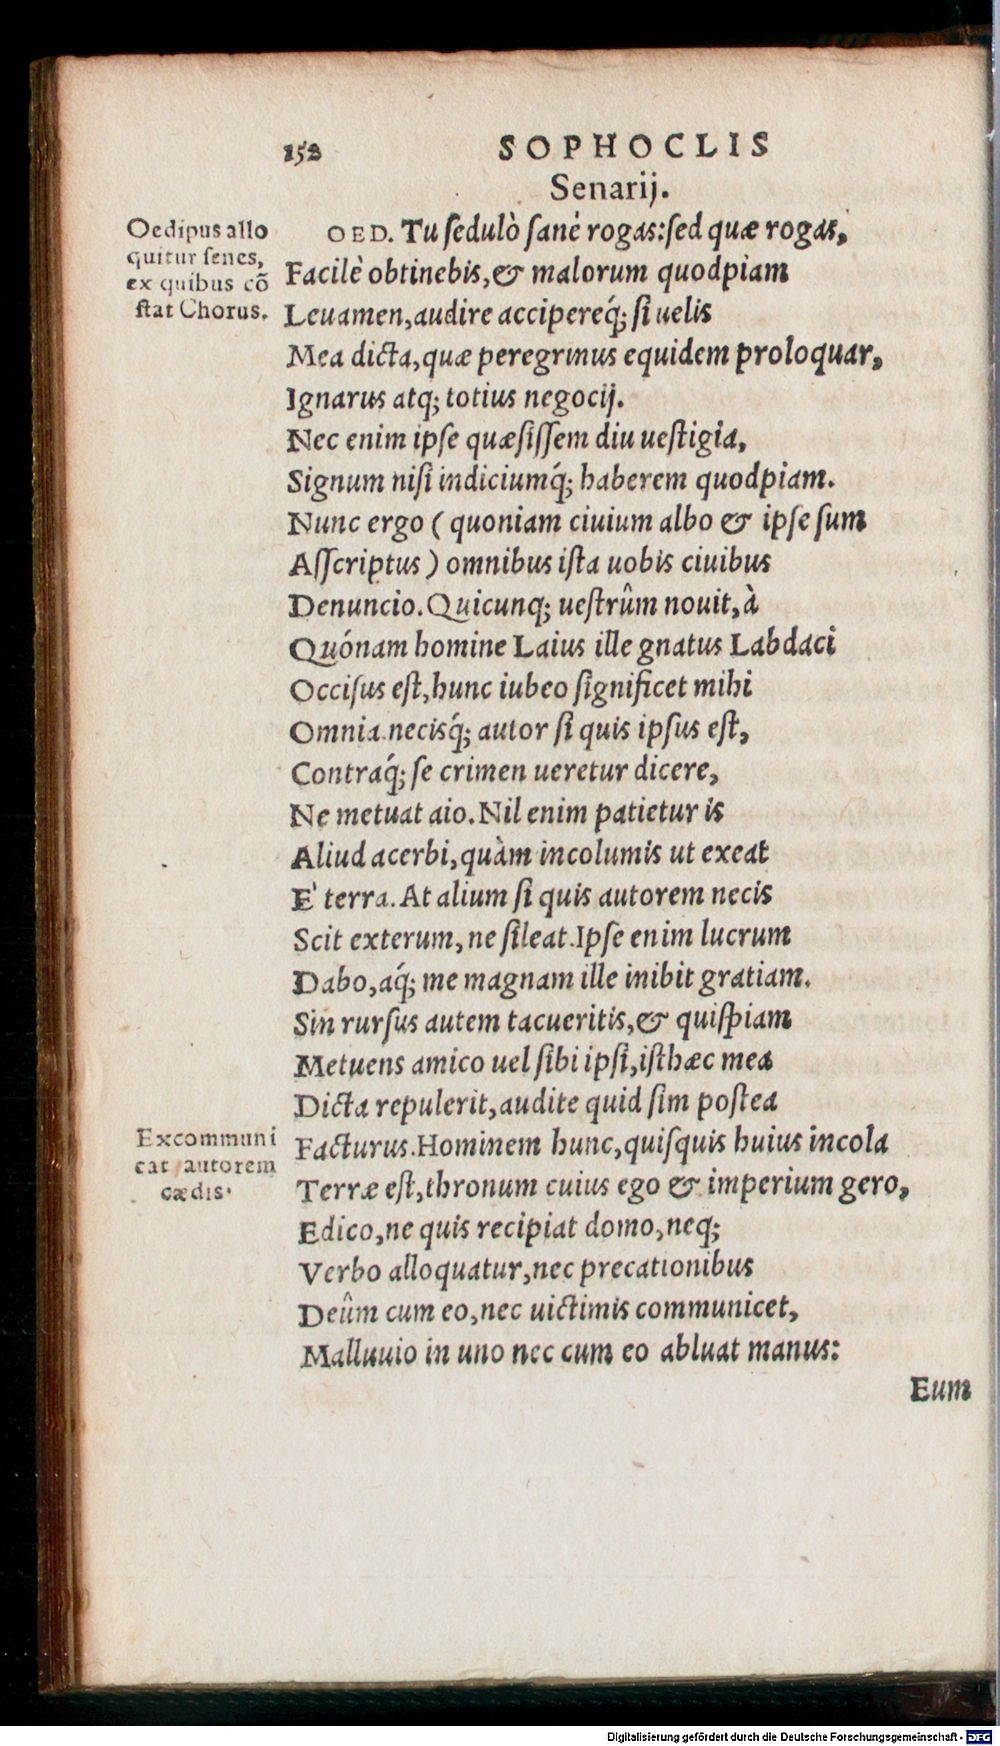 152 SOPHOCLIS
Senarij.
Oedipus allo
quitur senes,
ex quibus cõ
stat Chorus.
OED. Tu sedulò sanè rogas: sed quæ rogas,
Facilè obtinebis, & malorum quodpiam
Leuamen, audire accipereq́; si uelis
Mea dicta, quæ peregrinus equidem proloquar,
Ignarus atq; totius negocij.
Nec enim ipse quæsissem diu uestigia,
Signum nisi indiciumq́; haberem quodpiam.
Nunc ergo ( quoniam ciuium albo & ipse sum
Asscriptus ) omnibus ista uobis ciuibus
Denuncio. Quicunq; uestrûm nouit, à
Quónam homine Laius ille gnatus Labdaci
Occisus est, hunc iubeo significet mihi
Omnia. necisq́; autor si quis ipsus est,
Contraq́; se crimen ueretur dicere,
Ne metuat aio. Nil enim patietur is
Aliud acerbi, quàm incolumis ut exeat
E' terra. At alium si quis autorem necis
Scit exterum, ne sileat. Ipse enim lucrum
Dabo, aq́; me magnam ille inibit gratiam.
Sin rursus autem tacueritis, & quispiam
Metuens amico uel sibi ipsi, isthæc mea
Dicta repulerit, audite quid sim postea
Excommuni
cat autorem
cædis.
Facturus. Hominem hunc, quisquis huius incola
Terræ est, thronum cuius ego & imperium gero,
Edico, ne quis recipiat domo, neq;
Verbo alloquatur, nec precationibus
Deûm cum eo, nec uictimis communicet,
Malluuio in uno nec cum eo abluat manus:
Eum
Digitalisierung gefördert durch die Deutsche Forschungsgemeinschaft - DFG